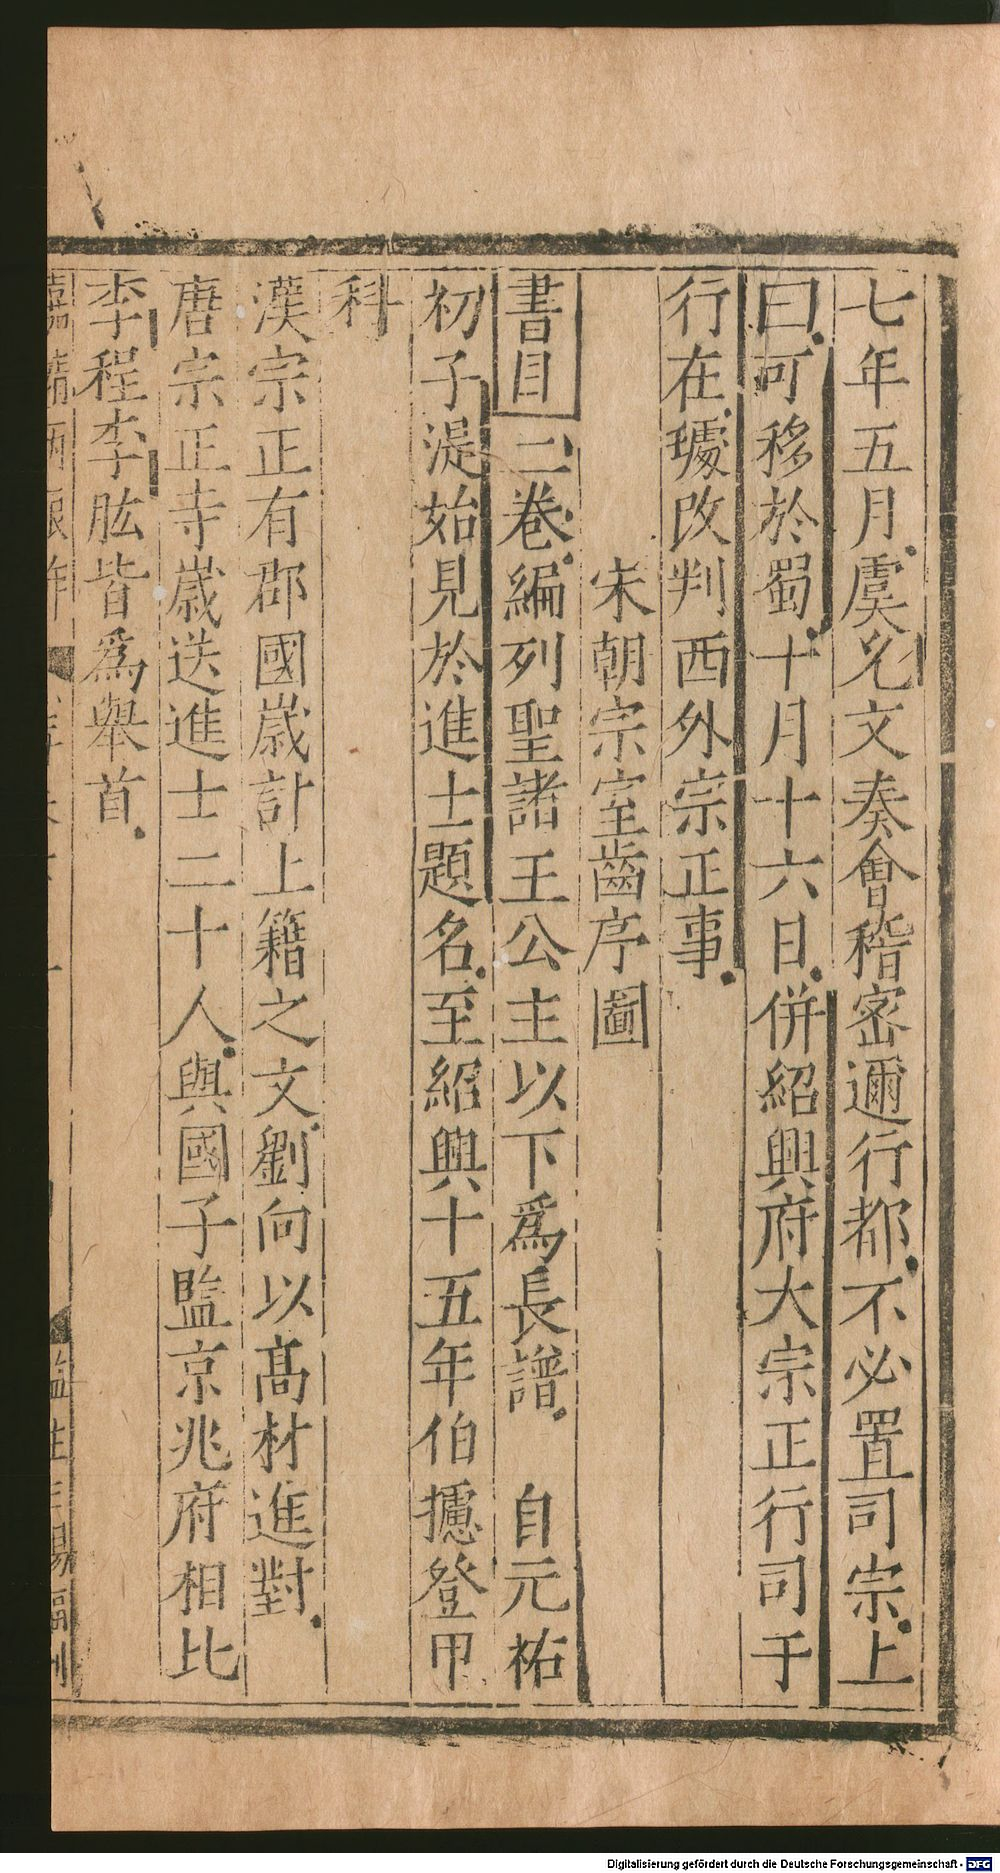 七年五月虞允文奏會稽密邇行都不必置司宗上
曰可移於蜀十月十六日併紹興府大宗正行司于
行在璩改判西外宗正事
宋朝宗室齒序圖
書目二卷編列聖諸王公主以下爲長譜 自元祐
初子湜始見於進士題名至紹興十五年伯攄登甲
科
漢宗正有郡國歲計上籍之文劉向以高材進對
唐宗正寺歲送進士二十人與國子監京兆府相比
李程李肱皆爲舉首
Digitalisierung gefördert durch die Deutsche Forschungsgemeinschaft - DFG